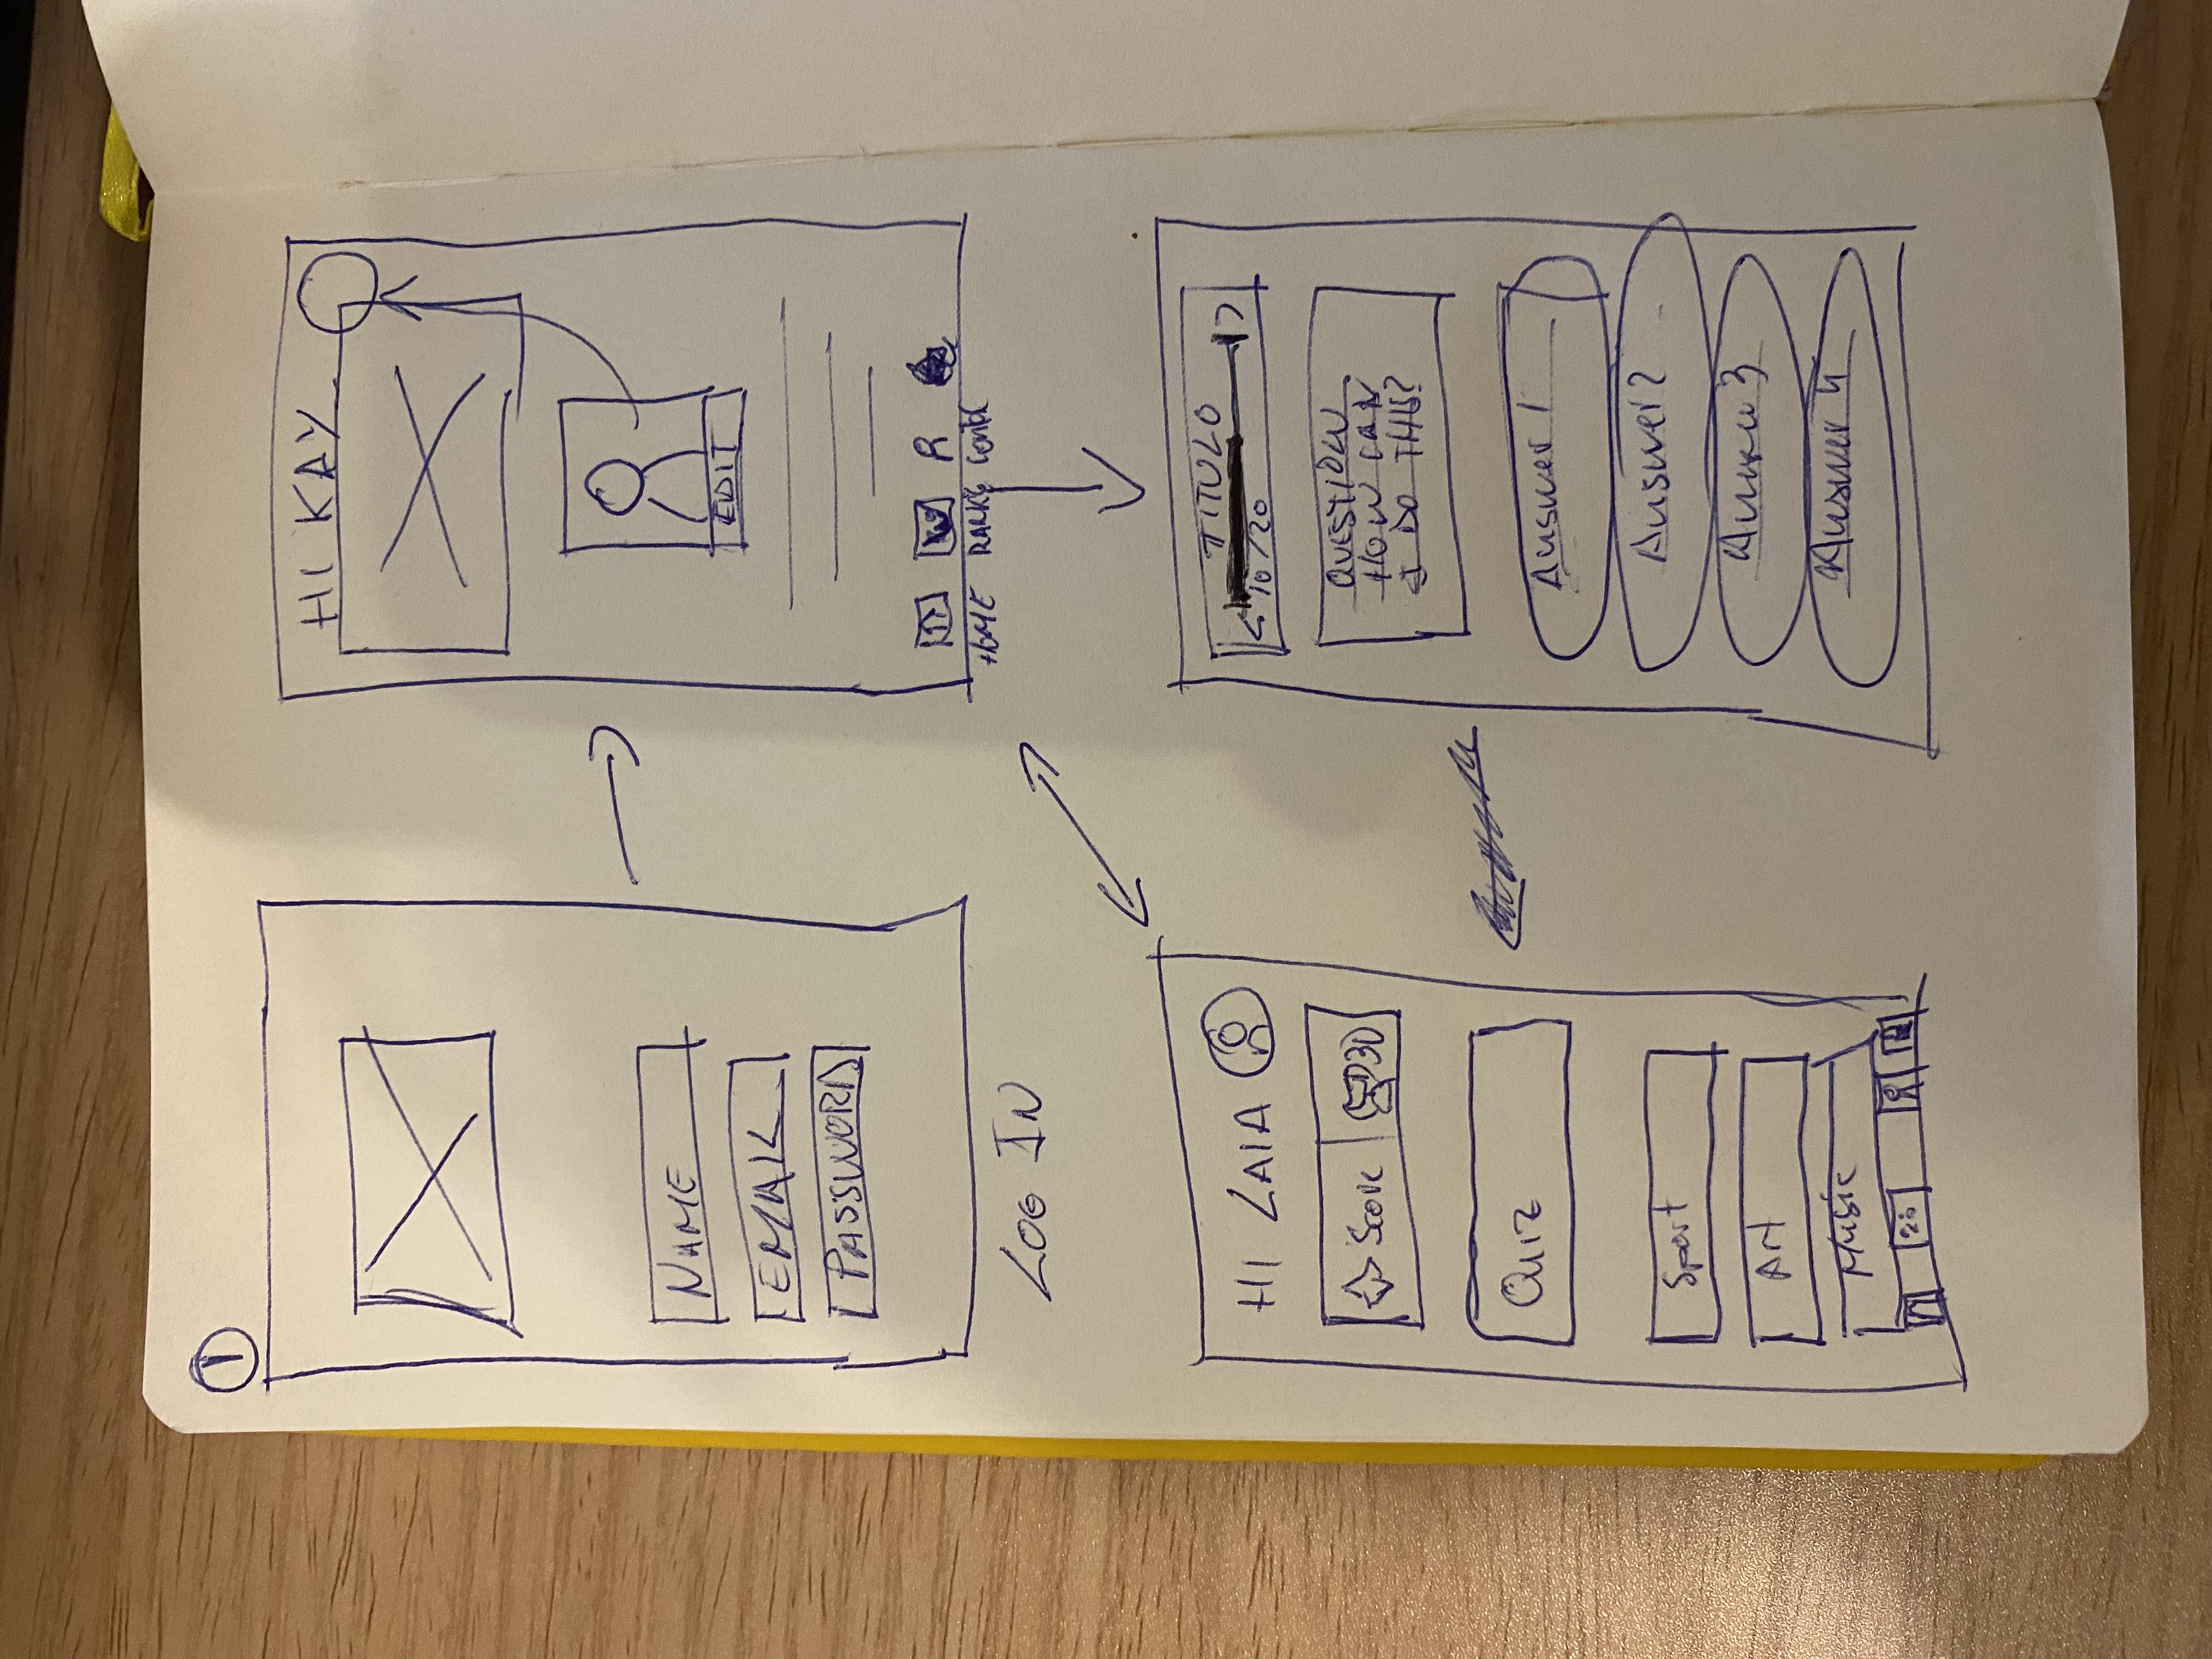 1
NAME
EMAIL
PASSWORD
LOG IN
HI KAY
EDIT
HOME
HI LAIA
Score
30
Quiz
Sport
Art
Music
TITULO
10/20
QUESTION
HOW CAN
I DO THIS?
Answer 1
Answer 2
Answer 4